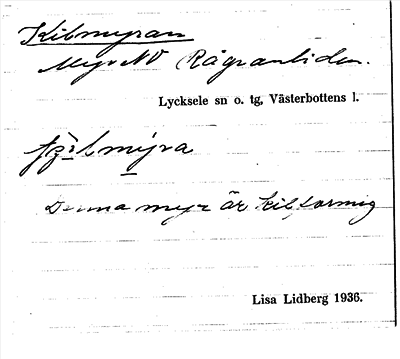 Kilmyran
Myr NV Rågranliden.
Lycksele sn o. tg, Västerbottens l.
myra
Denna myr är kilformig
Lisa Lidberg 1936.